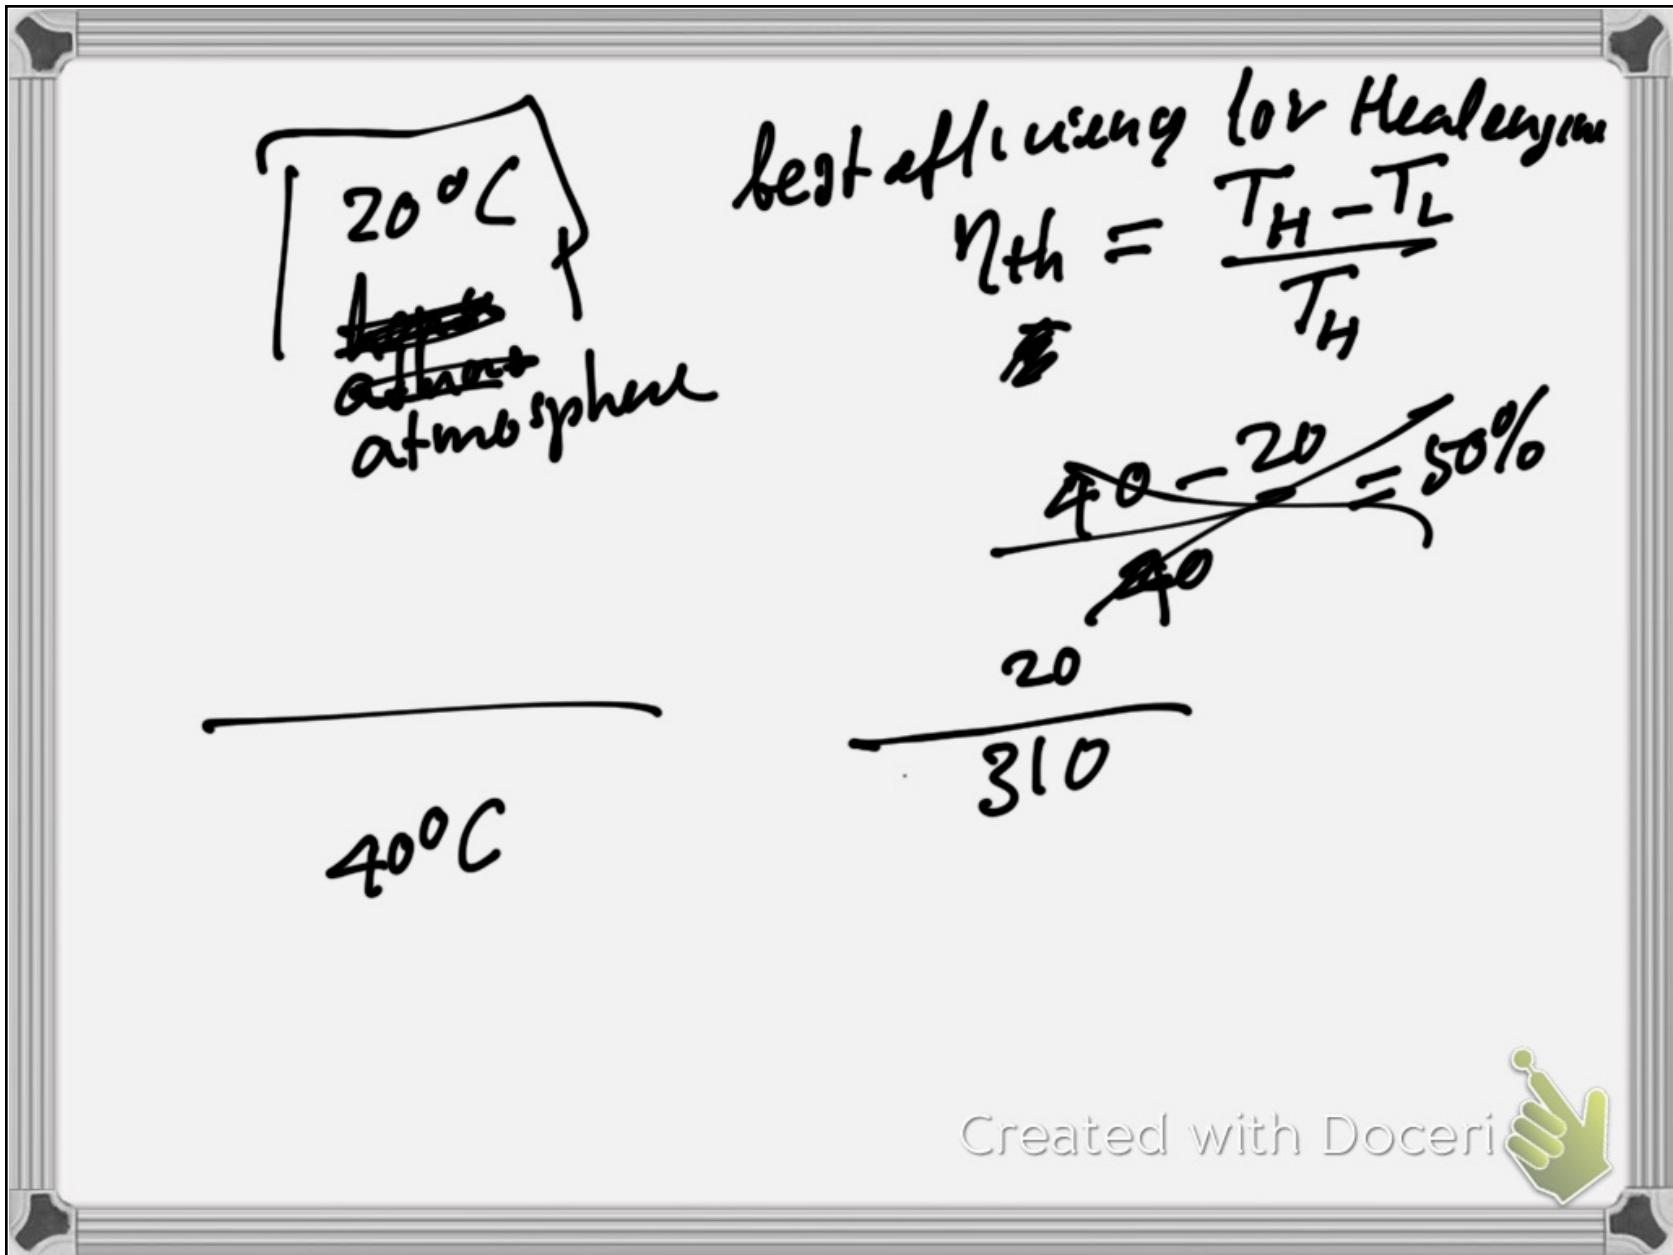 20°C
atmosphere
40°C
best efficiency for Heat engine
ηth = TH - TL
TH
40 - 20 = 50%
40
20
310
Created with Doceri